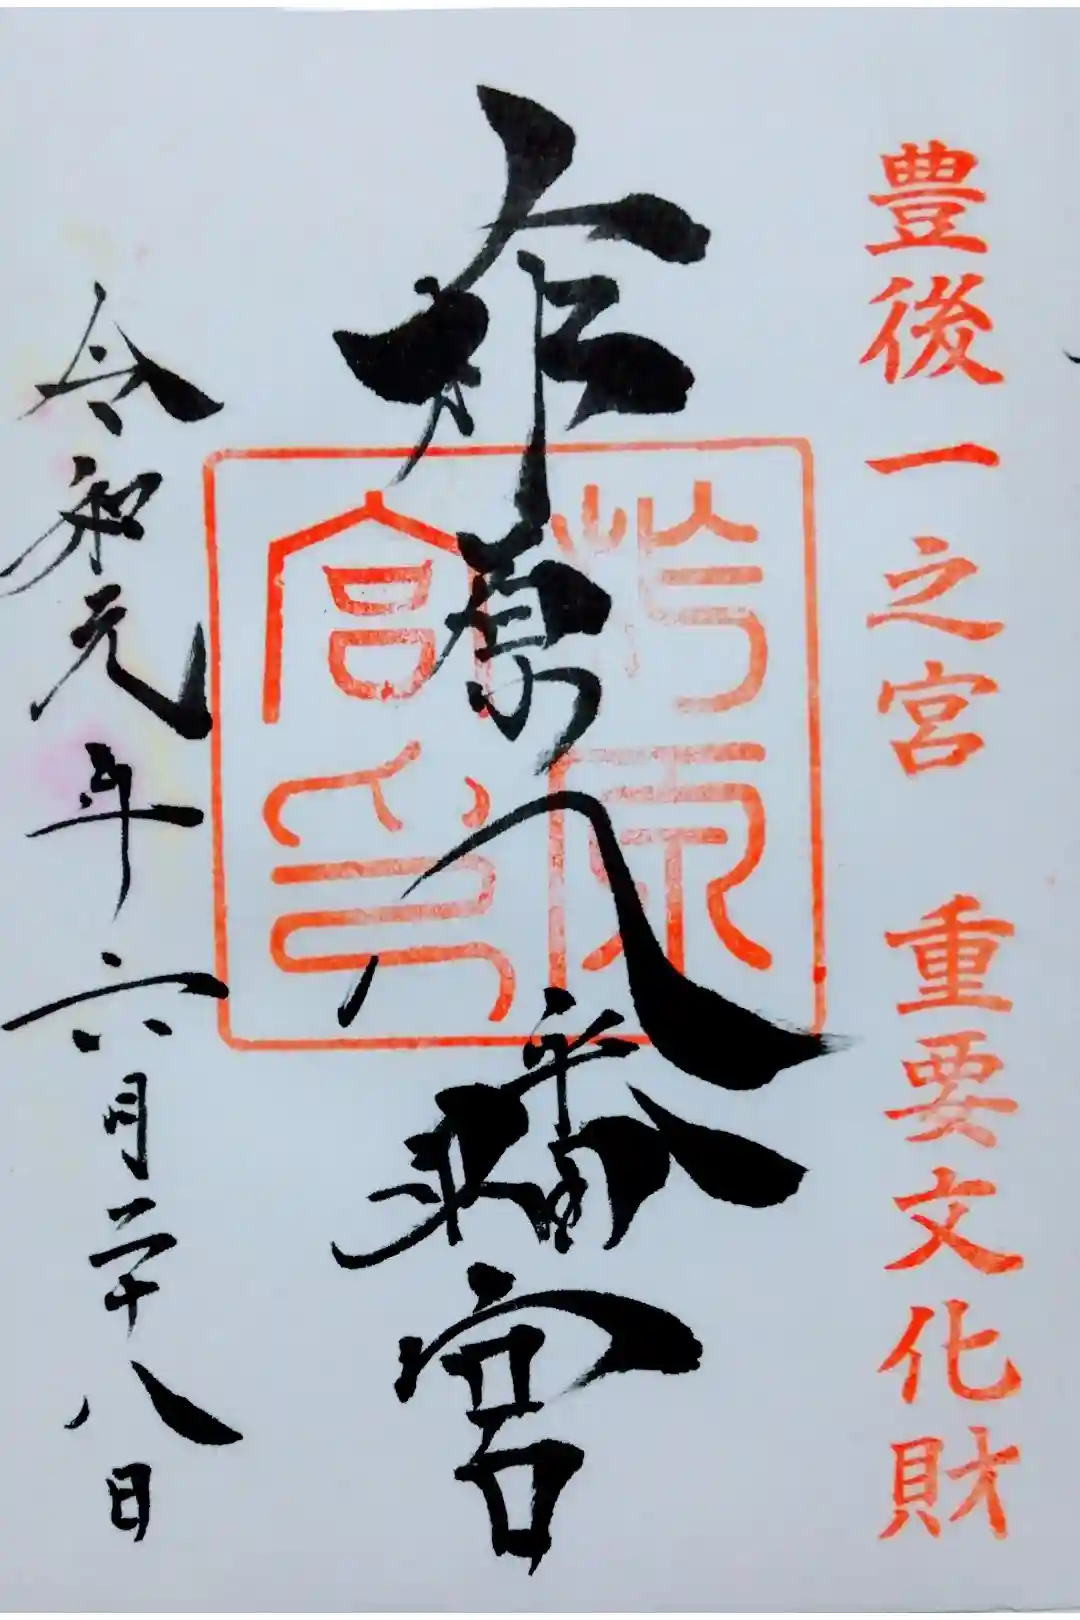 豊後一之宮 重要文化財
柞原八幡宮
柞原宮印
令和元年六月二十八日